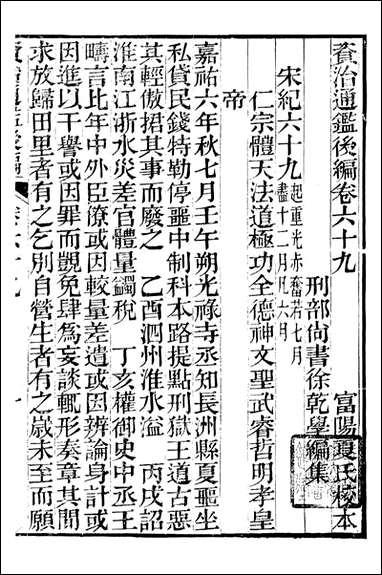 資治通鑑後編卷六十九
富陽夏氏校本
刑部尚書徐乾學編集
宋紀六十九起重光赤奮若七月盡十二月凡六月
仁宗體天法道極功全德神文聖武睿哲明孝皇
帝
嘉祐六年秋七月壬午朔光祿寺丞知長洲縣夏噩坐
私貸民錢特勒停噩中制科本路提點刑獄王道古惡
其輕傲捃其事而廢之 乙酉泗州淮水溢 丙戌詔
淮南江浙水災差官體量蠲稅 丁亥權御史中丞王
疇言比年中外臣僚或因較量差遣或因辨論身計或
因進以干譽或因罪而覬免肆爲妄談輒形奏章其間
求放歸田里者有之乞別自營生者有之歲未至而願